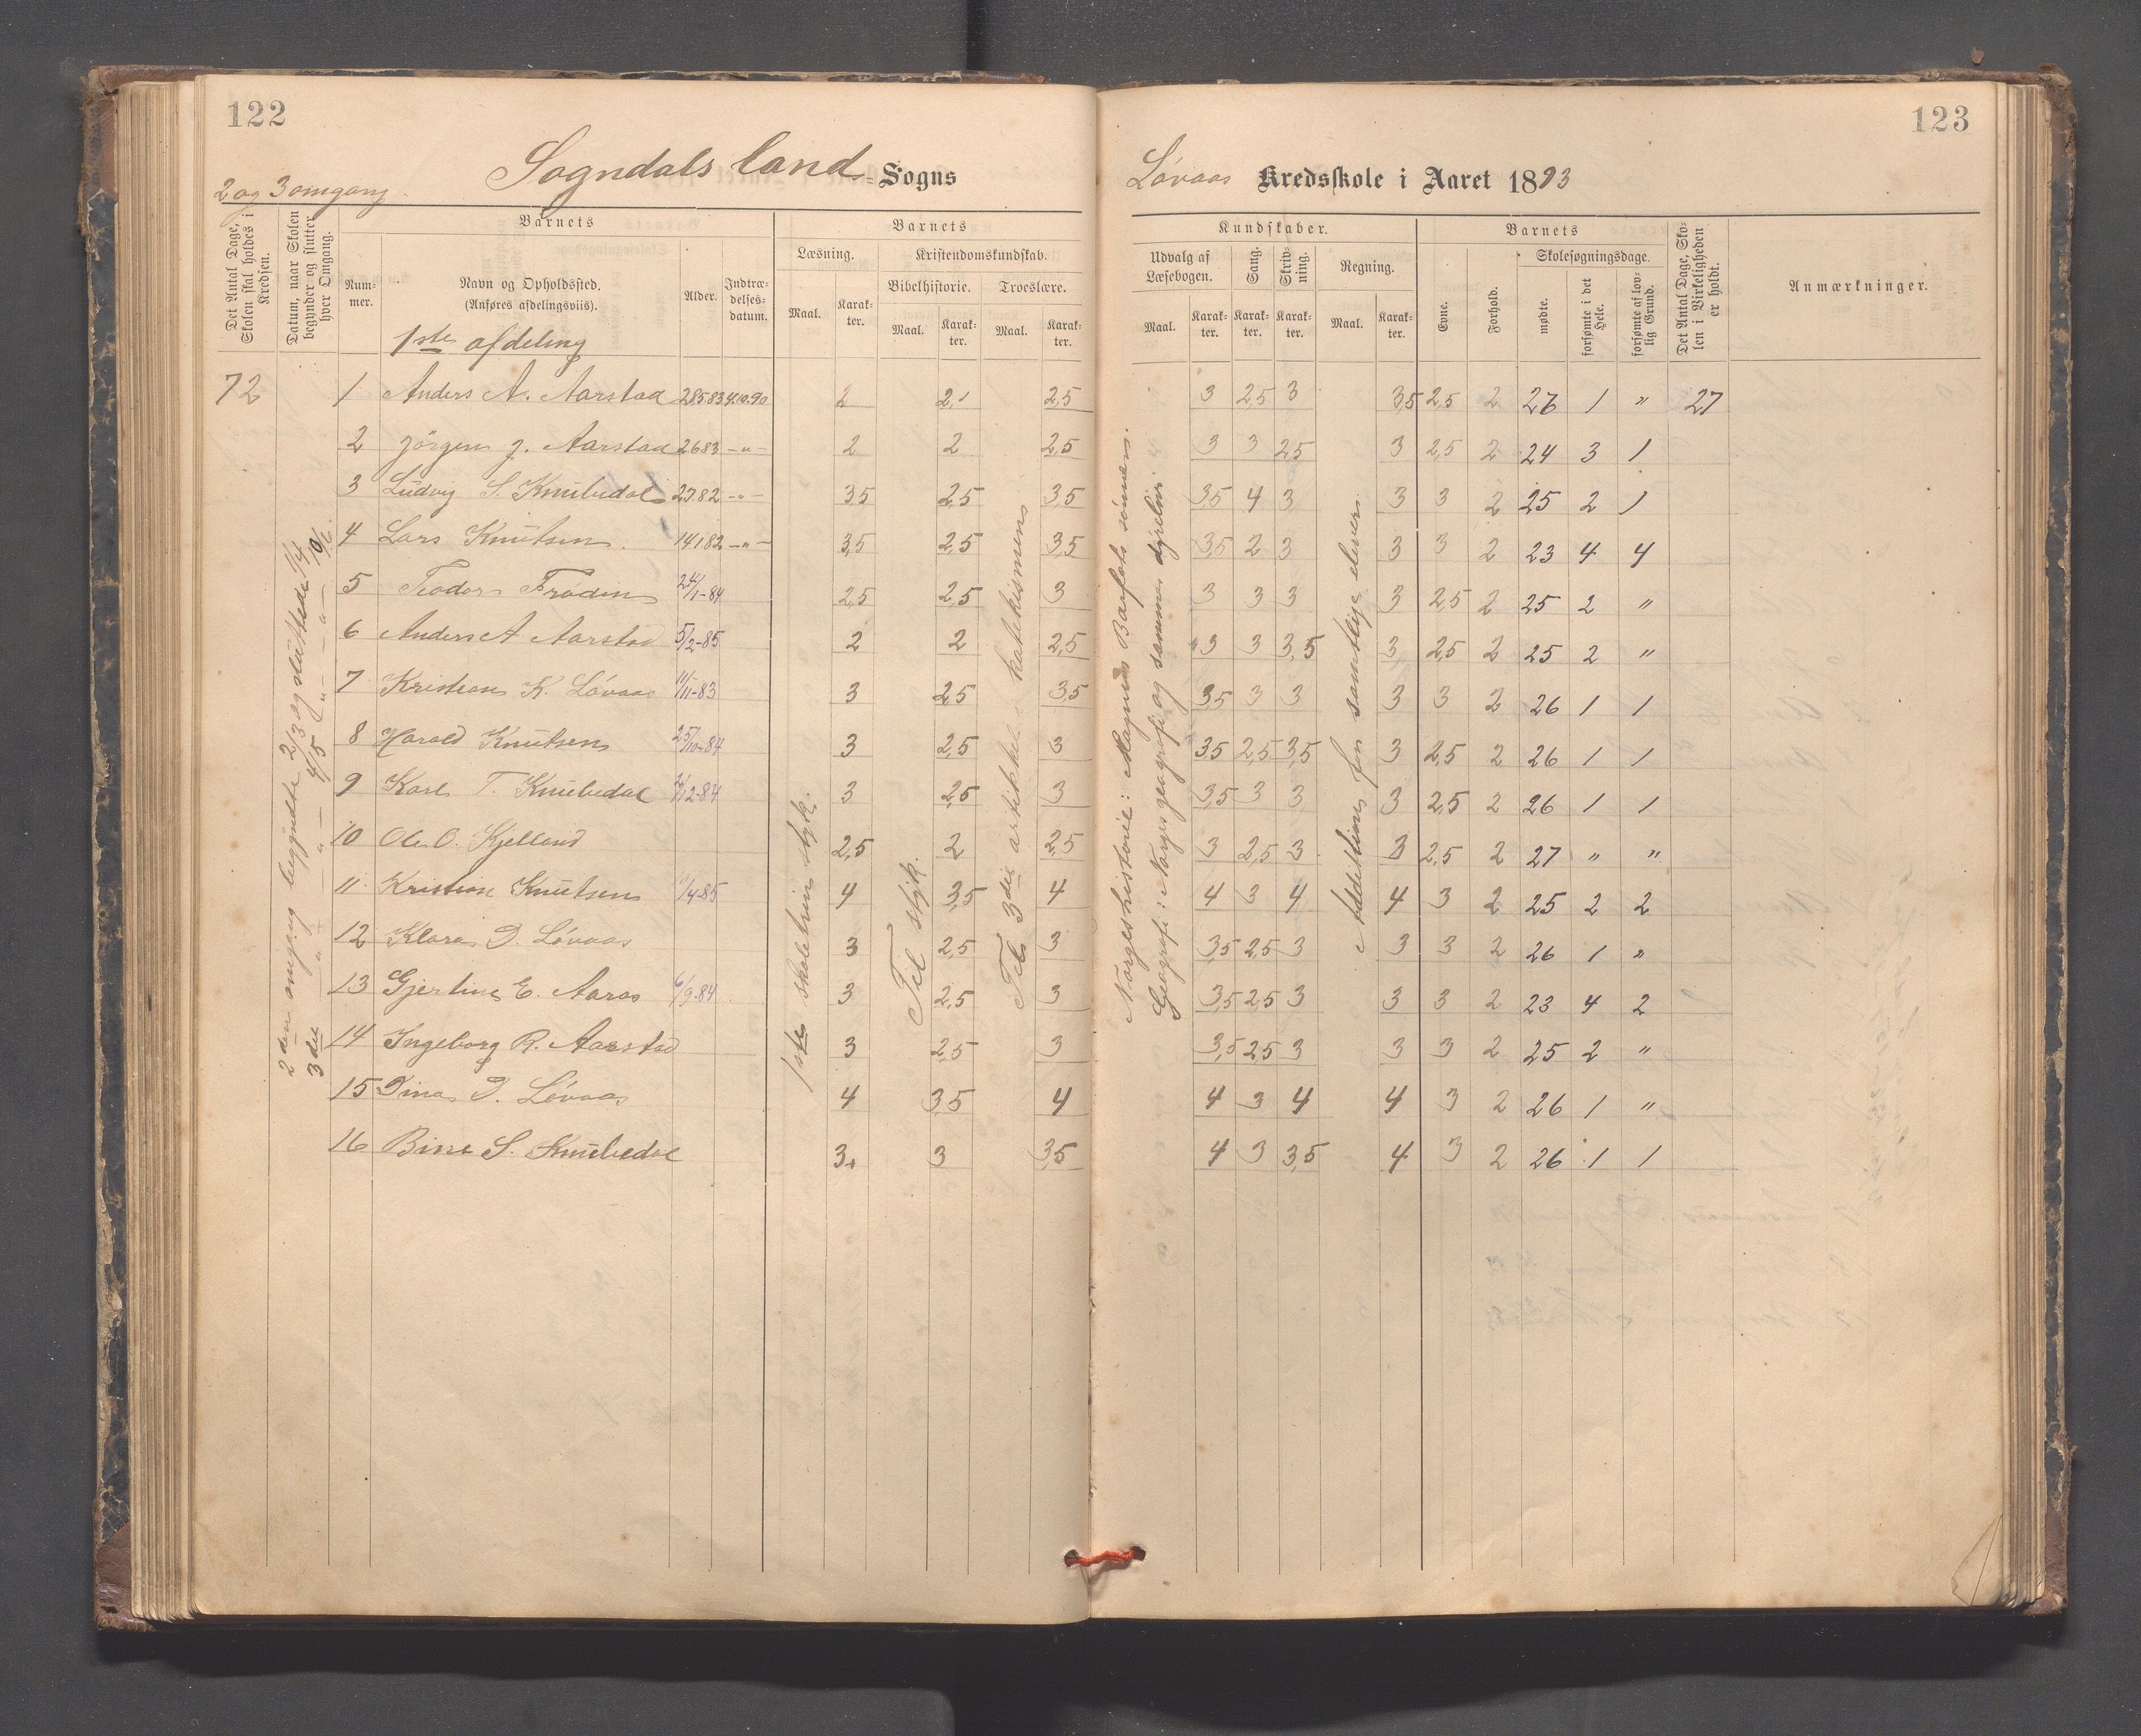 122
Sogndals land Sogns
2 og 3 omgang
Det Antal Dage, Skolen skal holdes i Kredsen.
Datum, naar Skolen begynder og slutter hver Omgang.
Barnets
Num-mer.
Navn og Opholdssted.
(Anføres afdelingsviis).
1ste afdeling
Alder.
Indtræ-delses-datum.
Barnets
Læsning.
Maal.
Karak-ter.
Kristendomskundskab.
Bibelhistorie.
Maal.
Karak-ter.
Troeslære.
Maal.
Karak-ter.
72
1 Anders A. Aarstad 28583 4.10.90 2 2 2,5
2 Jörgen J. Aarstad 2683 -"- 2 2 2,5
3 Ludvig S. Knubedal 2782 -"- 3,5 2,5 3,5
4 Lars Knutsen. 14182 -"- 3,5 2,5 3,5
5 Teodor Frödin 24/1-84 2,5 2,5 3
6 Anders A Aarstad 5/2-85 2 2 2,5
7 Kristian K. Lövaas 11/11-83 3 2,5 3,5
8 Harald Knutsen 25/10-84 3 2,5 3
9 Karl T. Knubedal 3 2,5 3
10 Ole O. Kjelland 2,5 2 2,5
11 Kristine Knutsen 4 3,5 4
12 Klara D. Lövaas 3 2,5 3
13 Gjertine E. Aaros 6/9-84 3 2,5 3
14 Ingeborg R. Aarstad 3 2,5 3
15 Dina D. Lövaas 4 3,5 4
16 Bine S. Knubedal 3+ 3 3,5
2den omgang begyndte 2/3 og sluttede 11/4
3die -"- -"- 4/5 -"- -"- 9/6.
1ste skoletrin styk.
Til styk.
Til 3die artikkel katekismen
123
Lövaas Kredsskole i Aaret 1893
Kundskaber.
Udvalg af Læsebogen.
Maal.
Karak-ter.
Sang.
Karak-ter.
Skriv-ning.
Karak-ter.
Regning.
Maal.
Karak-ter.
Barnets
Evne.
Forhold.
Skolesøgningsdage.
mødte.
forsømte i det Hele.
forsømte af lov-lig Grund.
Det Antal Dage, Sko-len i Virkeligheden er holdt.
Anmærkninger.
3 2,5 3 3,5 2,5 2 26 1 " 27
3 3 2,5 3 2,5 2 24 3 1
3,5 4 3 3 3 2 25 2 1
3,5 2 3 3 3 2 23 4 4
3 3 3 3 2,5 2 25 2 "
3 3 3,5 3 2,5 2 25 2 "
3,5 3 3 3 3 2 26 1 1
3,5 2,5 3,5 3 2,5 2 26 1 1
3,5 3 3 3 2,5 2 26 1 1
3 2,5 3 3 2,5 2 27 " "
4 3 4 4 3 2 25 2 2
3,5 2,5 3 3 3 2 26 1 "
3,5 2,5 3 3 3 2 23 4 2
3,5 2,5 3 3 3 2 25 2 "
4 3 4 4 3 2 26 1 "
4 3 3,5 4 3 2 26 1 1
Norgeshistorie: Magnus Barfots sönner.
Geografi: Norges geografi og samme
Addition for samtlige elever.